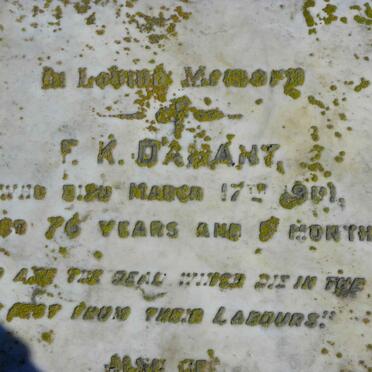 In Loving Memory
OF
F. K. DAMANT,
WHO DIED MARCH 17TH 1901,
76 YEARS AND MONTH
ARE THE DEAD WHICH DIE IN THE
REST FROM THEIR LABOURS."
ALSO OF